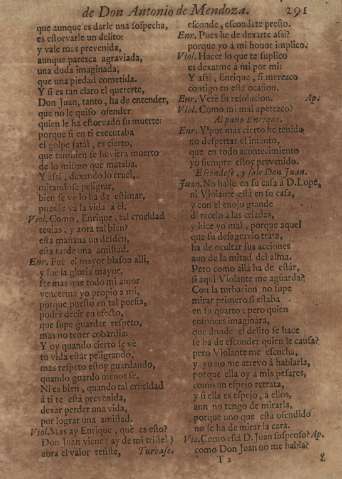 de Don Antonio de Mendoza. 291
que aunque es darle una sospecha,
es estorvarle un delito:
y vale mas prevenida,
aunque parezca agraviada,
una duda imaginada,
que una piedad cometida.
Y si es tan claro el quererte,
Don Juan, tanto, ha de entender,
que no le quiso ofender
quien le ha escusado su muerte:
porque si en ti executaba
el golpe fatal, es cierto,
que tambien se hallàra muerto
de lo mismo que mataba.
Y assi, debiendo lo cruel,
mirandose peligrar,
bien se vè lo ha de estimar,
pues la và la vida à èl.
Viol. Como, Enrique, tal crueldad
tenias, y aora tal bien?
esta mañana un desdèn,
esta tarde una amistad.
Enr. Fue el mayor blason alli,
y fue la gloria mayor,
que mas que todo mi amor
vencerme yo propio à mi,
porque puesto en tal poesia,
podrè decir en efecto,
que supe guardar respeto,
mas no tener cobardia.
Y oy quando cierto se vè
tu vida estàr peligrando,
mas respeto estoy guardando,
quando guardo menos fè.
Ni es bien, quando tal crueldad
à ti te està prevenida,
dexar perder una vida,
por lograr una amistad.
Viol. Mas ay Enrique, què es esto?
Don Juan viene! ay de mi triste!
aora el valor resiste, Turbase.
esconde, escondete presto.
Enr. Pues he de dexarte assi?
porque yo à mi honor implico.
Viol. Hacer lo que te suplico
es dexarme à mi por mi.
Y assi, Enrique, si merezco
contigo en esta ocasion.
Enr. Verè su resolucion. Ap.
Viol. Como mi mal apetezco?
Al paño Enrique.
Enr. Y por mas cierto he tenido
no despertar el intento,
que en todo acontecimiento
yo siempre estoy prevenido.
Escondese, y sale Don Juan.
Juan. No hallè en su casa à D. Lope,
ni Violante està en su casa,
y con el enojo grande
dixeselo à las criadas,
y hice yo mal, porque aquel
que su desagravio trata,
ha de ocultar sus acciones
aun de la mitad del alma.
Pero como alla ha de estàr,
si aqui Violante me aguarda?
Con la turbacion no supe
mirar primero si estaba
en su quarto; pero quien
entonces imaginàra,
que donde el delito se hace
se ha de esconder quien le causa?
pero Violante me escucha,
y yo no me atrevo à hablarla,
porque ella oy à mis pesares,
como un espejo retrata,
y si ella es espejo, à ellos,
aun no tengo de mirarla,
porque uno que està ofendido
no se ha de mirar la cara.
Vio. Como està D. Juan suspenso? Ap.
como Don Juan no me habla?
T 2